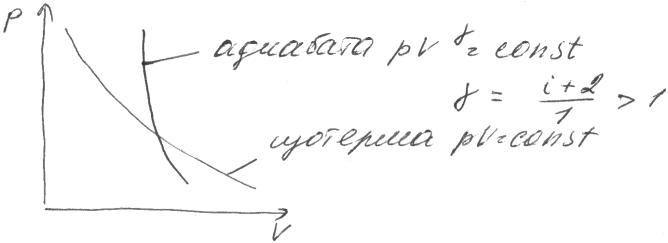 P
адиабата pV^γ = const
γ = i+2/1 > 1
изотерма pV=const
V